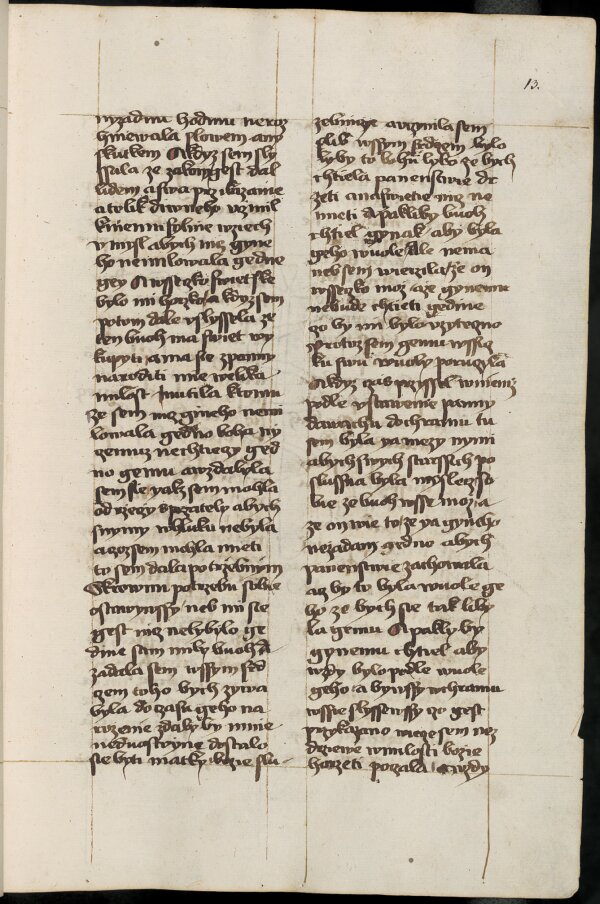 13.
nyzadnu hodinu neroz
hniewala slowem any
skutkem A kdyz sem sly
ssala ze zakon gest dal
lidem a swa przikazanie
a tolik diwneho vczinil
v mysl abych nicz gyne
ho nemilowala gedne
gey A wsseczko swietske
bylo mi horzko a kdyz sem
potom dale vslyssela ze
ten buoh ma swiet wy
kupyti a ma sie z panny
naroditi mne welika
milost
ze sem nicz gineho nemi
lowala gedno boha ny
gemuz nechtiegy ged
no gemu a wzdalyla
sem sie yakz sem mohla
od rzeczy s przately abych
s nymy w hluku nebyla
a czoz sem mohla mieti
to sem dala potrzebnym
Skrownu potrzebu sobie
ostawywssy neb mi sie
gest nicz nelybylo ge
dine sam mily buoh A
zadala sem wssym srd
czem toho bych zywa
byla do czasu geho na
rozenie zdaby by mnie
neduostoyne dostalo
sie byti matky bozie slu
zebniczie a vczinila sem
slib wssym srdczem bylo
lyby to bohu lybo ze bych
chtiela panenstwie dr
zeti a na swietie nicz ne
mieti A pakliby buoh
chtiel gynak aby byla
geho wuole Ale nema
neb sem wierzila ze on
wsseczko moz a ze gynemu
nebude chtieti gedine
czo by mi bylo vzyteczno
Protoz sem gemu wssiczk
ku swu wuoly poruczyla
A kdyz czas przissel w niemz
podle vstawenie panny
dawachu do chramu tu
sem byla y a mezy nymi
abych swych starssich po
slussna byla myslecz so
bie ze buoh wsse moz a
ze on wie to ze ya gyneho
nezadam gedno abych
panenstwie zachowala
acz by to byla wuole ge
ho ze bych sie tak liby
la gemu A pakly by
gynemu chtiel aby
wzdy bylo podle wuole
geho a bywssy w chramu
wssie slyssewssy czo gest
przykazano wiecze sem nez
drziewe w milosti bozie
horzeti poczala a wzdy